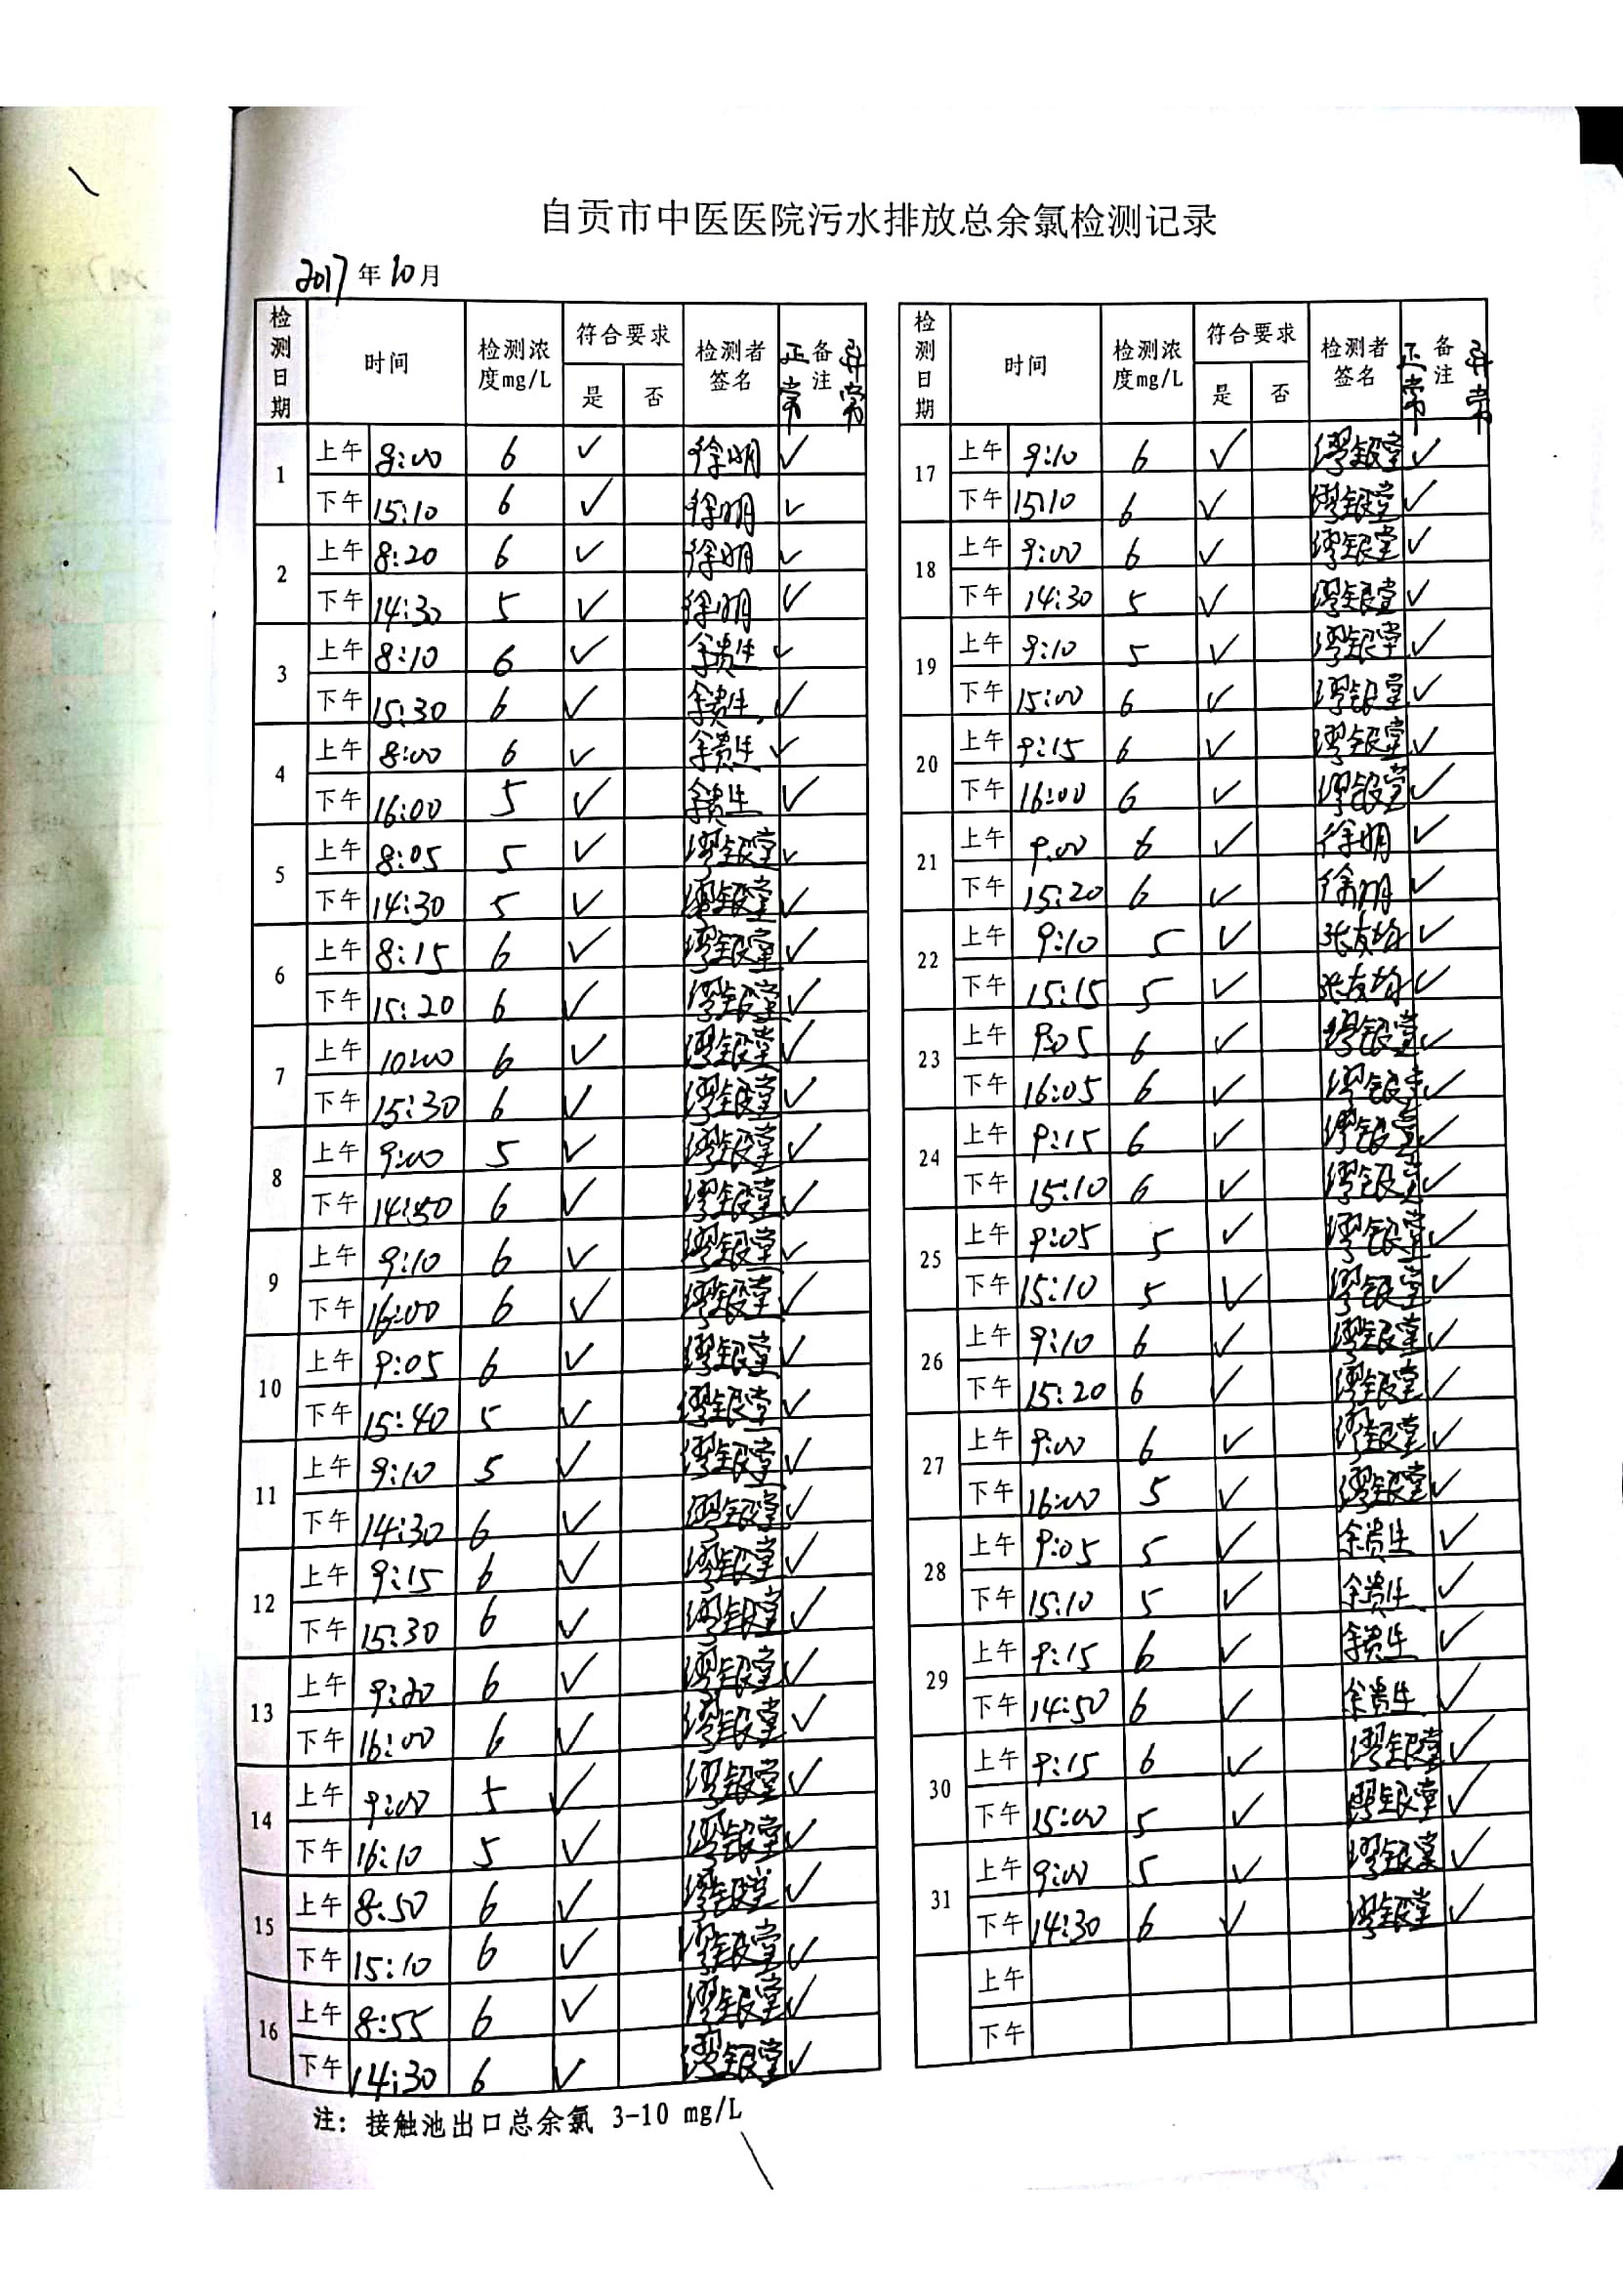 自贡市中医医院污水排放总余氯检测记录
2017年10月
检测日期 时间 检测浓度mg/L 符合要求 是 否 检测者签名 正常 备注 异常
1 上午 8:00 6 ✓ 徐明 ✓
下午 15:10 6 ✓ 徐明 ✓
2 上午 8:20 6 ✓ 徐明 ✓
下午 14:30 5 ✓ 徐明 ✓
3 上午 8:10 6 ✓ 余贵生 ✓
下午 15:30 6 ✓ 余贵生 ✓
4 上午 8:00 6 ✓ 余贵生 ✓
下午 16:00 5 ✓ 余贵生 ✓
5 上午 8:05 5 ✓ 缪银堂 ✓
下午 14:30 5 ✓ 缪银堂 ✓
6 上午 8:15 6 ✓ 缪银堂 ✓
下午 15:20 6 ✓ 缪银堂 ✓
7 上午 10:00 6 ✓ 缪银堂 ✓
下午 15:30 6 ✓ 缪银堂 ✓
8 上午 9:00 5 ✓ 缪银堂 ✓
下午 14:50 6 ✓ 缪银堂 ✓
9 上午 9:10 6 ✓ 缪银堂 ✓
下午 16:00 6 ✓ 缪银堂 ✓
10 上午 9:05 6 ✓ 缪银堂 ✓
下午 15:40 5 ✓ 缪银堂 ✓
11 上午 9:10 5 ✓ 缪银堂 ✓
下午 14:30 6 ✓ 缪银堂 ✓
12 上午 9:15 6 ✓ 缪银堂 ✓
下午 15:30 6 ✓ 缪银堂 ✓
13 上午 9:20 6 ✓ 缪银堂 ✓
下午 16:00 6 ✓ 缪银堂 ✓
14 上午 9:00 5 ✓ 缪银堂 ✓
下午 16:10 5 ✓ 缪银堂 ✓
15 上午 8:50 6 ✓ 缪银堂 ✓
下午 15:10 6 ✓ 缪银堂 ✓
16 上午 8:55 6 ✓ 缪银堂 ✓
下午 14:30 6 ✓ 缪银堂 ✓
检测日期 时间 检测浓度mg/L 符合要求 是 否 检测者签名 正常 备注 异常
17 上午 9:10 6 ✓ 缪银堂 ✓
下午 15:10 6 ✓ 缪银堂 ✓
18 上午 9:00 6 ✓ 缪银堂 ✓
下午 14:30 5 ✓ 缪银堂 ✓
19 上午 9:10 5 ✓ 缪银堂 ✓
下午 15:00 6 ✓ 缪银堂 ✓
20 上午 9:15 6 ✓ 缪银堂 ✓
下午 16:00 6 ✓ 缪银堂 ✓
21 上午 9:00 6 ✓ 徐明 ✓
下午 15:20 6 ✓ 徐明 ✓
22 上午 9:10 5 ✓ 张友均 ✓
下午 15:15 5 ✓ 张友均 ✓
23 上午 9:05 6 ✓ 缪银堂 ✓
下午 16:05 6 ✓ 缪银堂 ✓
24 上午 9:15 6 ✓ 缪银堂 ✓
下午 15:10 6 ✓ 缪银堂 ✓
25 上午 9:05 5 ✓ 缪银堂 ✓
下午 15:10 5 ✓ 缪银堂 ✓
26 上午 9:10 6 ✓ 缪银堂 ✓
下午 15:20 6 ✓ 缪银堂 ✓
27 上午 9:00 6 ✓ 缪银堂 ✓
下午 16:00 5 ✓ 缪银堂 ✓
28 上午 9:05 5 ✓ 余贵生 ✓
下午 15:10 5 ✓ 余贵生 ✓
29 上午 9:15 6 ✓ 余贵生 ✓
下午 14:50 6 ✓ 余贵生 ✓
30 上午 9:15 6 ✓ 缪银堂 ✓
下午 15:00 5 ✓ 缪银堂 ✓
31 上午 9:00 5 ✓ 缪银堂 ✓
下午 14:30 6 ✓ 缪银堂 ✓
上午
下午
注：接触池出口总余氯 3-10 mg/L